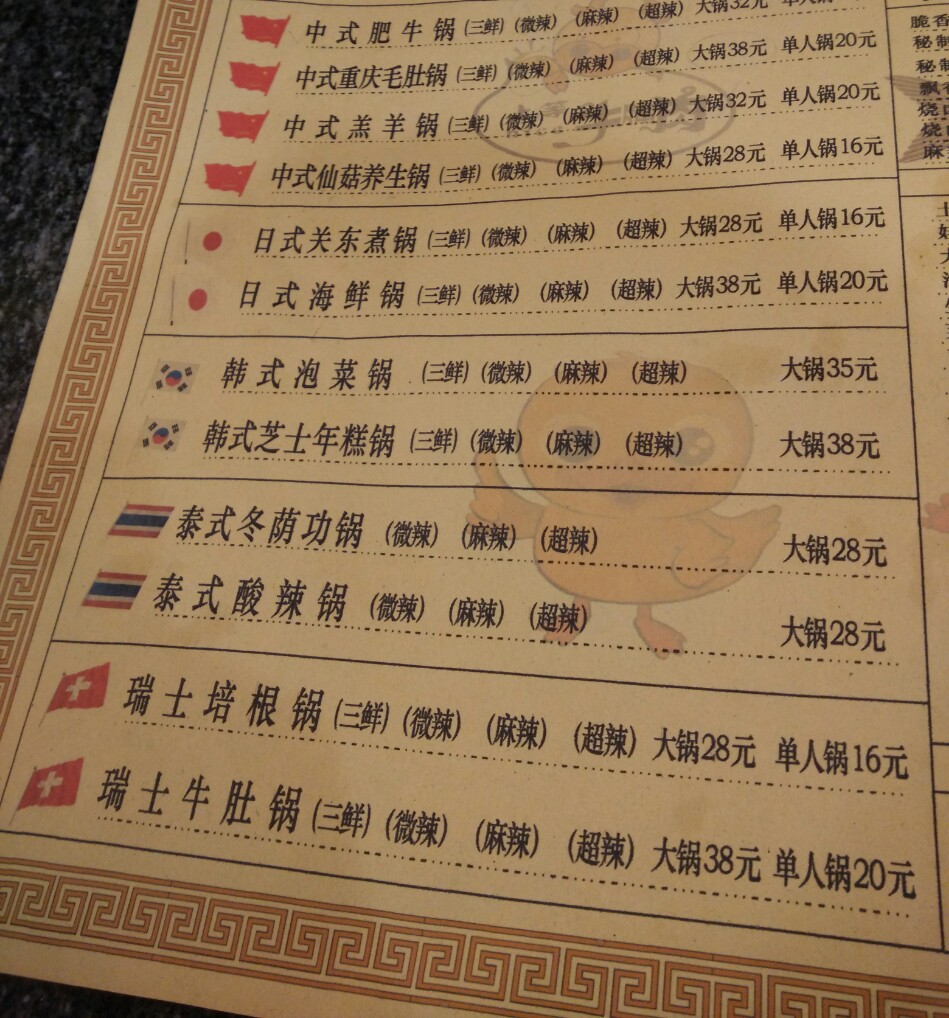 中式肥牛锅 (三鲜) (微辣) (麻辣) (超辣) 大锅32元
中式重庆毛肚锅 (三鲜) (微辣) (麻辣) (超辣) 大锅38元 单人锅20元
中式羔羊锅 (三鲜) (微辣) (麻辣) (超辣) 大锅32元 单人锅20元
中式仙菇养生锅 (三鲜) (微辣) (麻辣) (超辣) 大锅28元 单人锅16元
日式关东煮锅 (三鲜) (微辣) (麻辣) (超辣) 大锅28元 单人锅16元
日式海鲜锅 (三鲜) (微辣) (麻辣) (超辣) 大锅38元 单人锅20元
韩式泡菜锅 (三鲜) (微辣) (麻辣) (超辣) 大锅35元
韩式芝士年糕锅 (三鲜) (微辣) (麻辣) (超辣) 大锅38元
泰式冬荫功锅 (微辣) (麻辣) (超辣) 大锅28元
泰式酸辣锅 (微辣) (麻辣) (超辣) 大锅28元
瑞士培根锅 (三鲜) (微辣) (麻辣) (超辣) 大锅28元 单人锅16元
瑞士牛肚锅 (三鲜) (微辣) (麻辣) (超辣) 大锅38元 单人锅20元
脆香
秘制
秘制
飘香